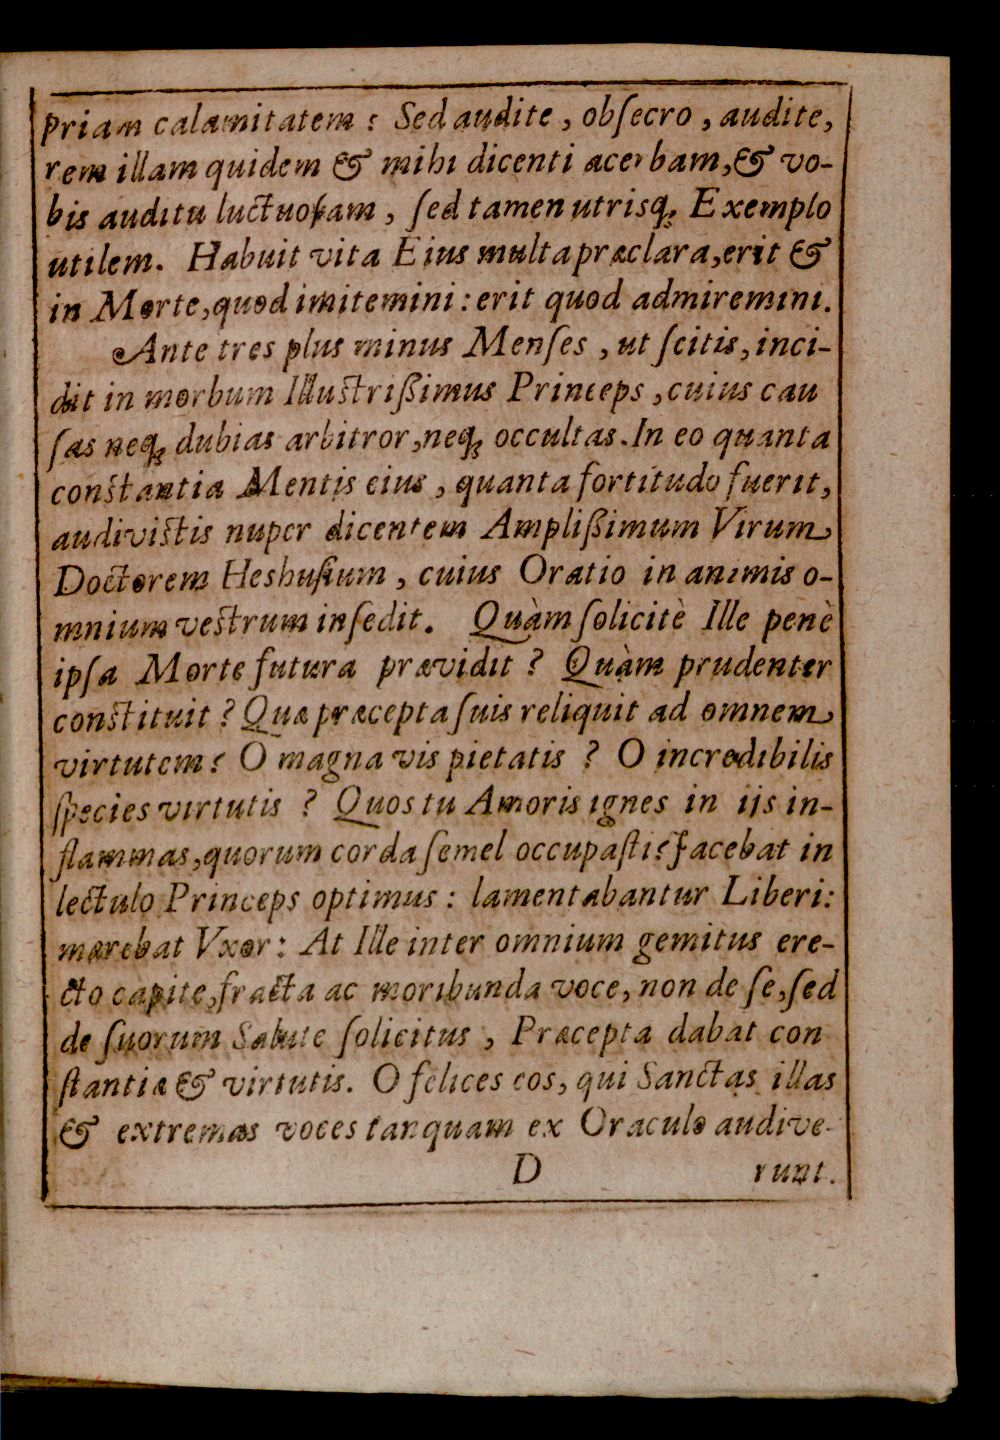 priam calamitatem : Sed audite , obſecro , audite,
rem illam quidem & mihi dicenti acerbam,& vo-
bis auditu luctuoſam , ſed tamen utrisq; Exemplo
utilem. Habuit vita Eius multa præclara,erit &
in Morte,quod imitemini : erit quod admiremini.
Ante tres plus minus Menſes , ut ſcitis, inci-
dit in morbum Illuſtrißimus Princeps ,cuius cau
ſas neq; dubias arbitror,neq; occultas. In eo quanta
conſtantia Mentis eius , quanta fortitudo fuerit,
audiviſtis nuper dicentem Amplißimum Virum
Doctorem Heshuſium , cuius Oratio in animis o-
mnium veſtrum inſedit. Quàm ſolicitè Ille penè
ipſa Morte futura prævidit ? Quàm prudenter
conſtituit ? Quæ præcepta ſuis reliquit ad omnem
virtutem ? O magna vis pietatis ? O incredibilis
ſpecies virtutis ? Quos tu Amoris ignes in ijs in-
flammas,quorum corda ſemel occupaſti? Jacebat in
lectulo Princeps optimus : lamentabantur Liberi:
mærebat Vxor : At Ille inter omnium gemitus ere-
cto capite,fracta ac moribunda voce, non de ſe,ſed
de ſuorum Salute ſolicitus , Præcepta dabat con
ſtantiæ & virtutis. O felices eos, qui Sanctas illas
& extremas voces tanquam ex Oraculo audive-
D runt.